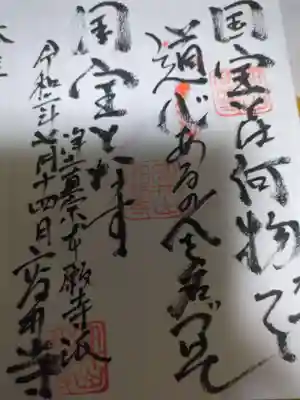 国宝とは何物ぞ
道心あるの人を名づけて
国宝となす
浄土真宗本願寺派
令和二年七月十四日